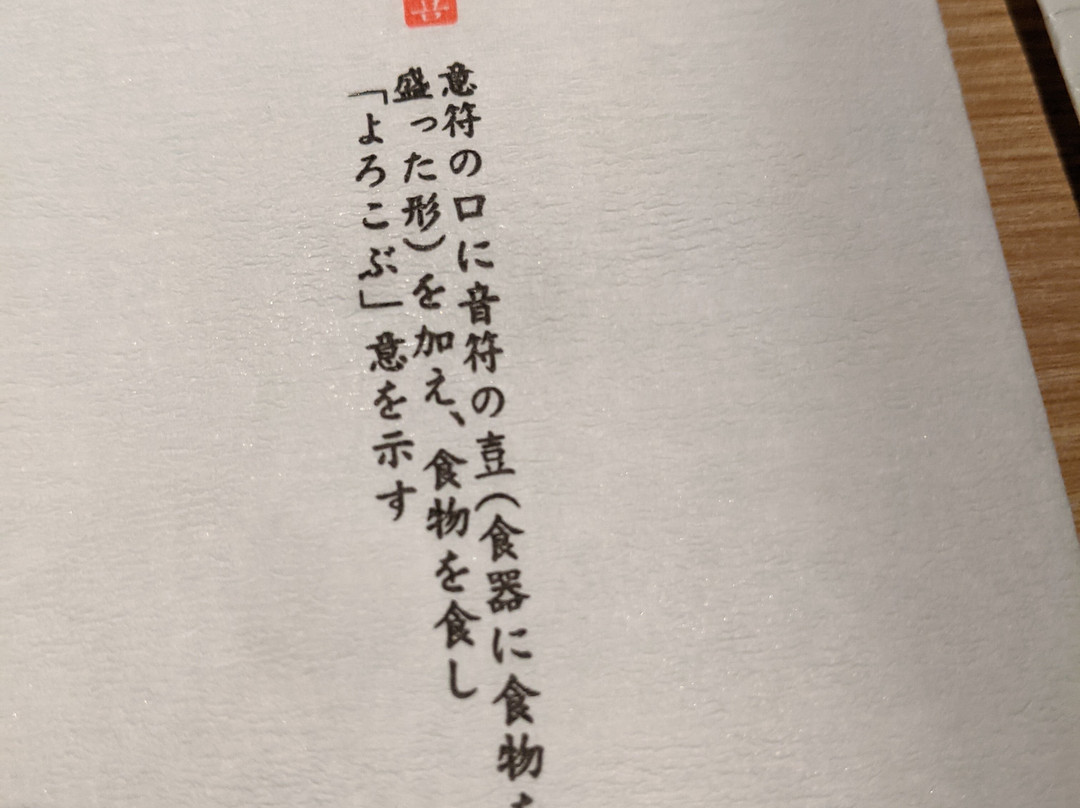 意符の口に音符の壴(食器に食物
盛った形)を加え、食物を食し
「よろこぶ」意を示す